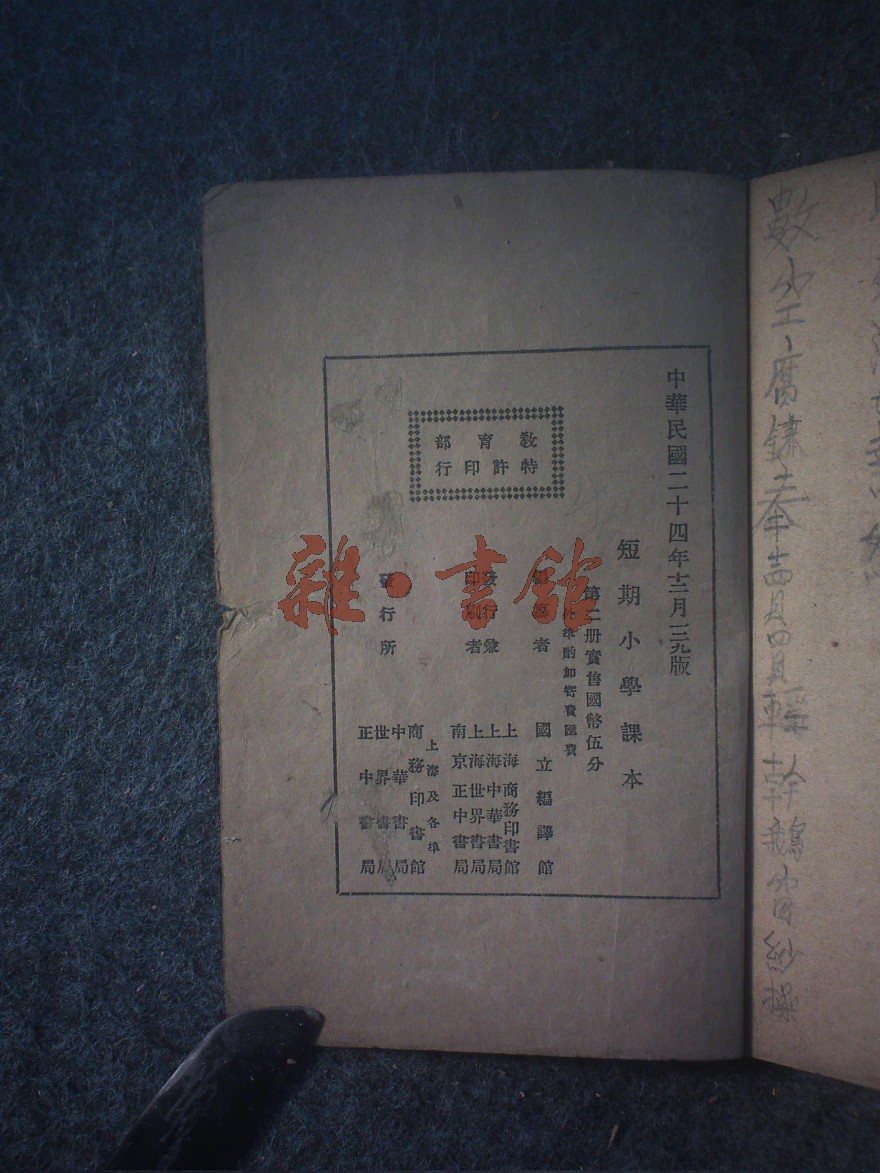 中華民國二十四年十二月三九版
短期小學課本
第二册實售國幣伍分
外埠酌加寄費匯費
教育部
特許印行
國立編譯館
發行兼
印刷者
上海商務印書館
上海中華書局
上海世界書局
南京正中書局
發行所
上海及各埠
商務印書館
中華書局
世界書局
正中書局
雜·書館
數 空 腐 鏽 奉 輕 幹 鵝 富 紗 操